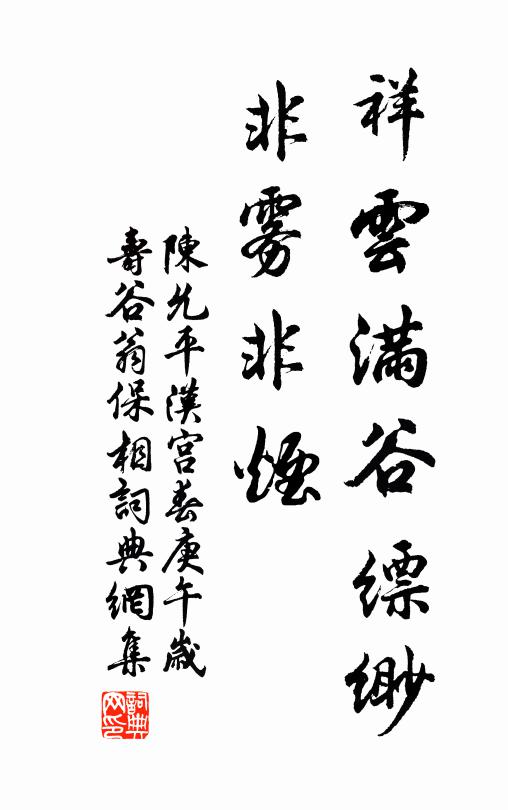 祥雲滿谷縹緲
非雾非煙
陳允平漢宮春庚午歲
壽谷翁保相詞典網集
詞典网印